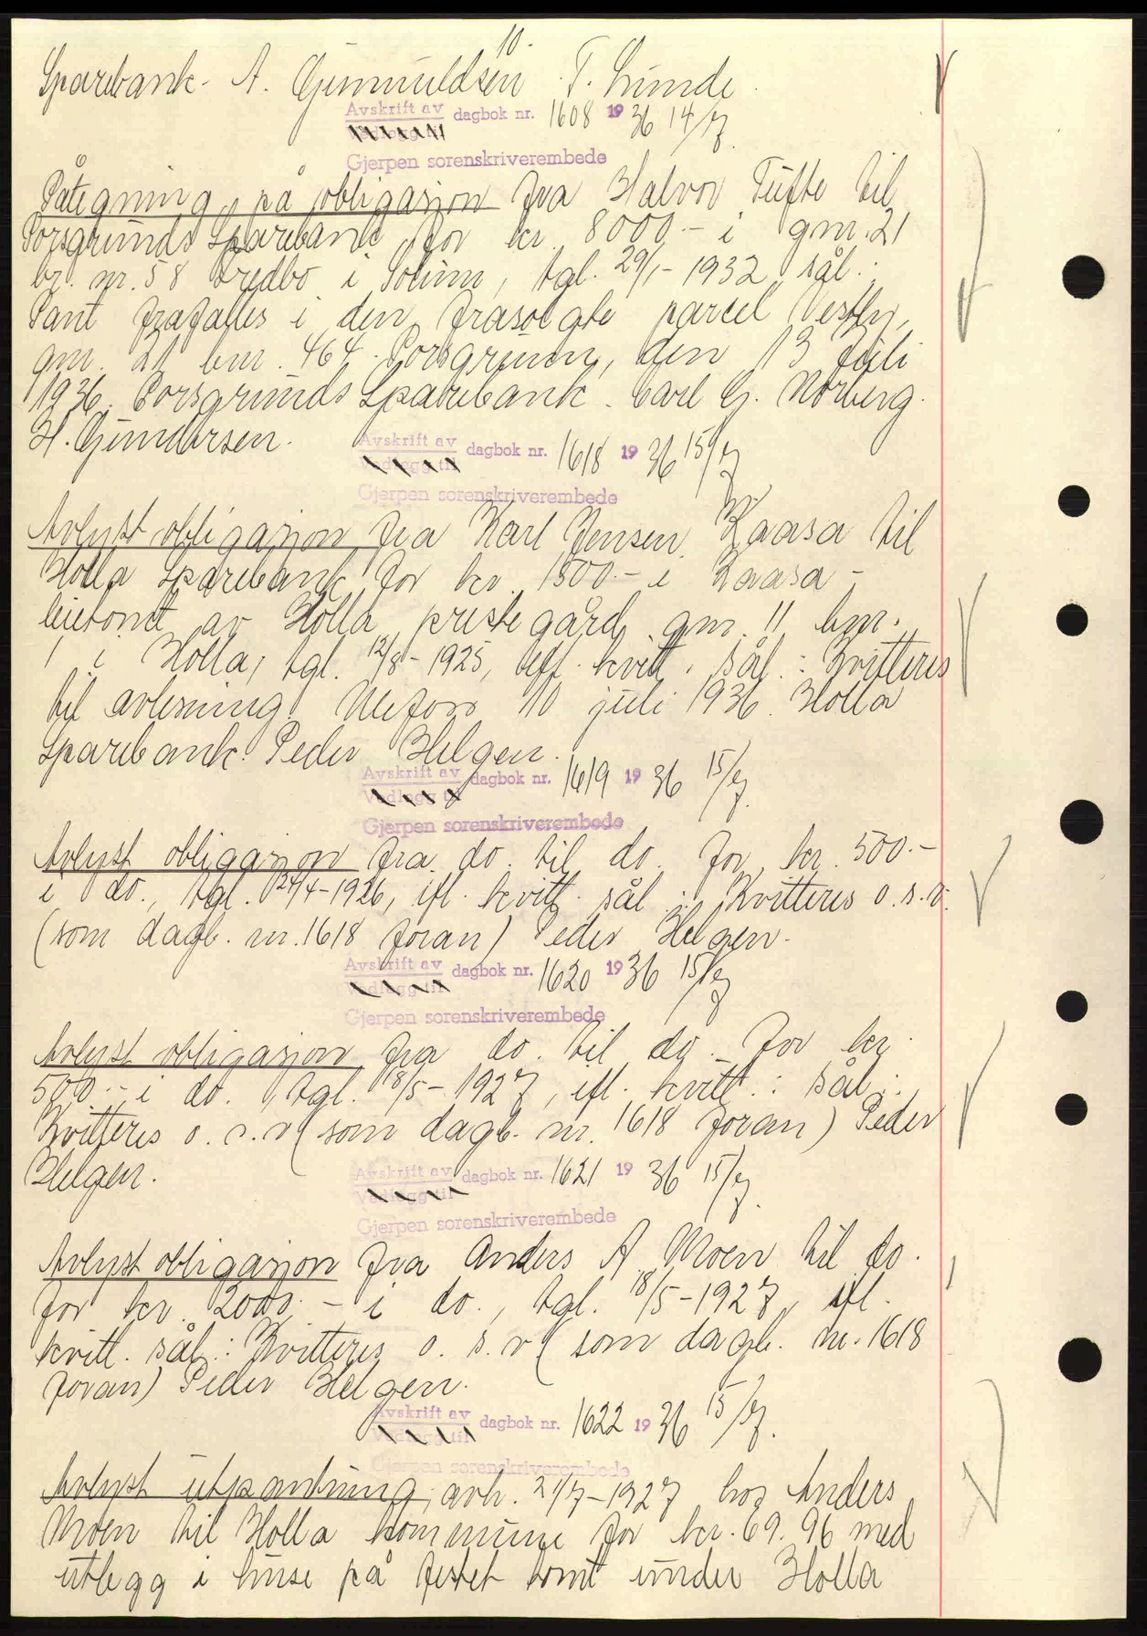 10.
Sparebank. A. Gunnuldsen T. Lunde.
Avskrift av dagbok nr. 1608 1936 14/7.
Gjerpen sorenskriverembede
Påtegning på obligasjon fra Halvor Tufte til
Porsgrunds Sparebank for kr. 8000.- i gnr. 21
br. nr. 58 Fredbo i Solum, tgl. 29/1-1932 sål.:
Pant frafalles i den frasolgte parcel Vestly,
gnr. 21 bnr. 464. Porsgrunn, den 13 Juli
1936. Porsgrunds Sparebank. Carl G. Norberg.
H. Gundersen.
Avskrift av dagbok nr. 1618 1936 15/7
Vedlegg til
Gjerpen sorenskriverembede
Avlyst obligasjon fra Karl Jensen Kaasa til
Holla Sparebank for kr. 1500.- i Kaasa -
leietomt av Holla prestegård gnr. 11 bnr.
1 i Holla, tgl. 12/8-1925, ifl. kvitt. sål.: Kvitteres
til avlesning. Ulefoss 10 juli 1936. Holla
Sparebank. Peder Helgen.
Avskrift av dagbok nr. 1619 1936 15/7.
Vedlegg til
Gjerpen sorenskriverembede
Avlyst obligasjon fra do. til do. for kr. 500.-
i do., tgl. 24/4-1926, ifl. kvitt. sål.: Kvitteres o.s.v.
(som dagb. nr. 1618 foran) Peder Helgen.
Avskrift av dagbok nr. 1620 1936 15/7
Vedlegg til
Gjerpen sorenskriverembede
Avlyst obligasjon fra do. til do. for kr.
500.- i do., tgl. 18/5-1927, ifl. kvitt.: sål.:
Kvitteres o.s.v (som dagb. nr. 1618 foran) Peder
Helgen.
Avskrift av dagbok nr. 1621 1936 15/7.
Vedlegg til
Gjerpen sorenskriverembede
Avlyst obligasjon fra Anders A. Moen til do.
for kr. 2000.- i do., tgl. 18/5-1927, ifl.
kvitt. sål.: Kvitteres o.s.v (som dagb. nr. 1618
foran) Peder Helgen.
Avskrift av dagbok nr. 1622 1936 15/7.
Vedlegg til
Gjerpen sorenskriverembede
Avlyst utpantning, avh. 21/7-1927 hos Anders
Moen til Holla kommune for kr. 69.96 med
utlegg i huse på festet tomt under Holla